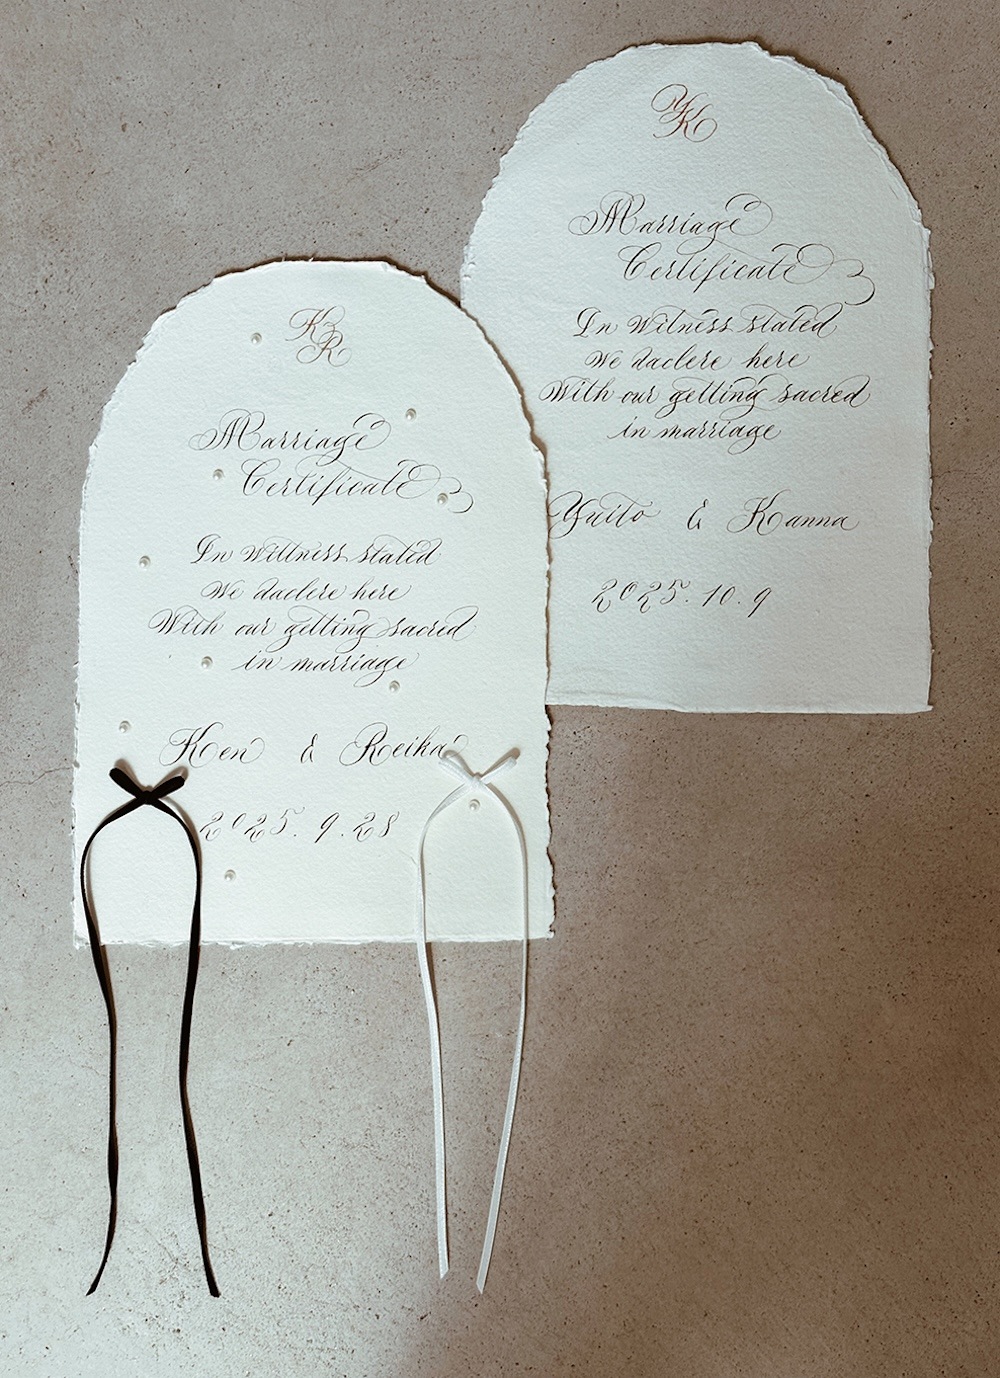 KR
Marriage
Certificate
In Wittness stated
We daclere here
With our getting sacred
in marriage
Ken & Reika
2025. 9. 28
YK
Marriage
Certificate
In Witness stated
We daclere here
With our getting sacred
in marriage
Yuito & Kanna
2025. 10. 9